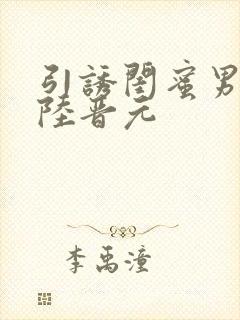 引誘閨蜜男
陸晋元
李禹潼